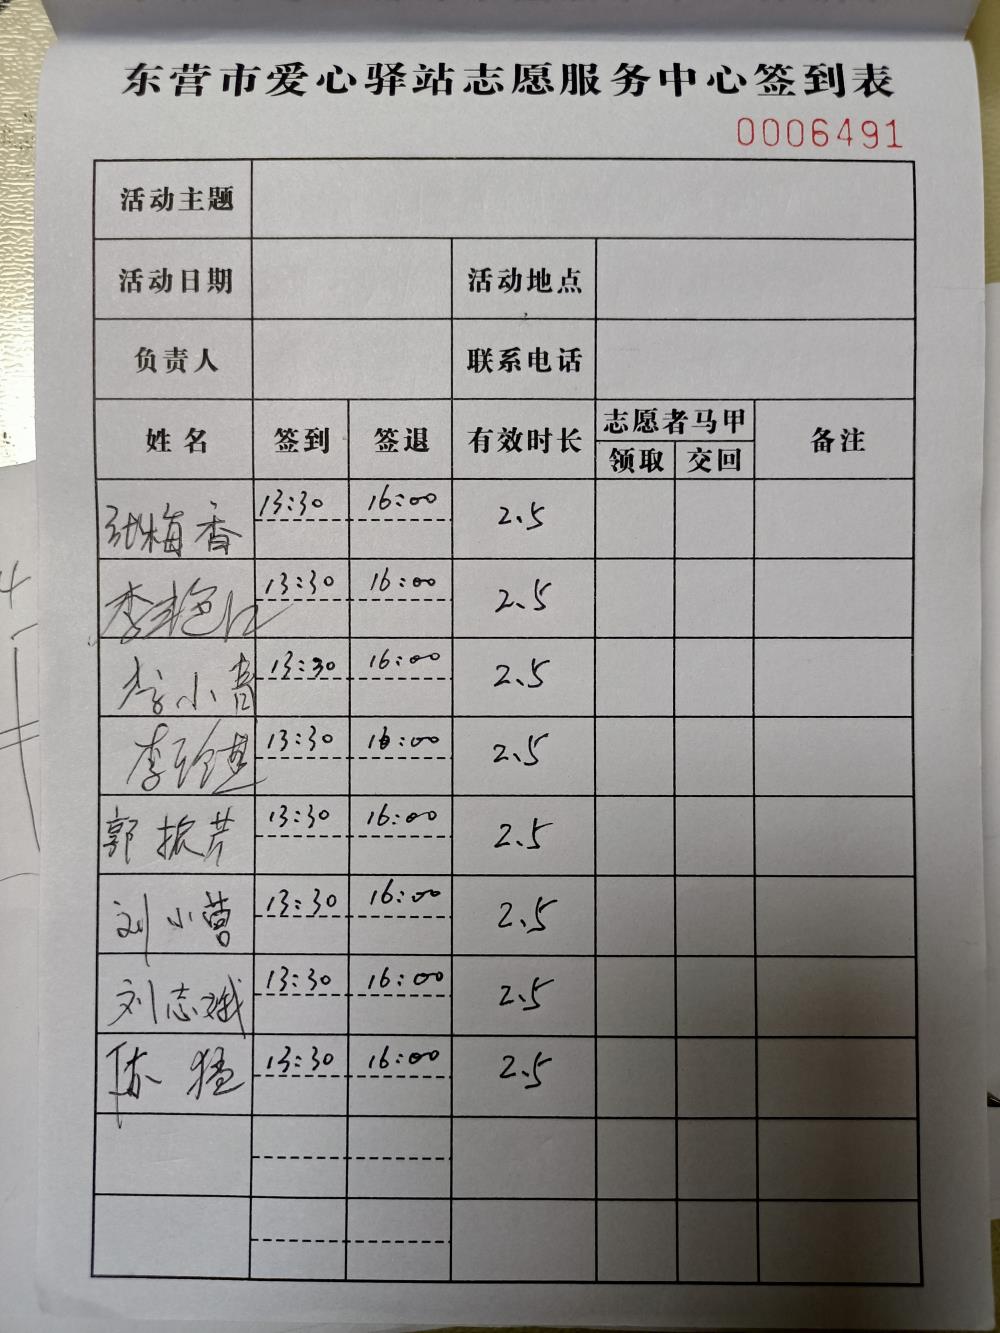 东营市爱心驿站志愿服务中心签到表
0006491
活动主题
活动日期 活动地点
负责人 联系电话
姓名 签到 签退 有效时长 志愿者马甲 备注
领取 交回
张梅香 13:30 16:00 2.5
李艳 13:30 16:00 2.5
李小青 13:30 16:00 2.5
李 13:30 16:00 2.5
郭振芹 13:30 16:00 2.5
刘小营 13:30 16:00 2.5
刘志娥 13:30 16:00 2.5
陈猛 13:30 16:00 2.5